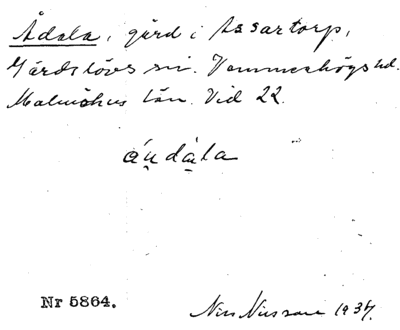 Ådala, gård i Assartorp,
Gärdslövs sn. Vemmenhögs hd.
Malmöhus län. Vid 22.
áu̯dà̯la
Nr 5864.
Nils Nilsson 1937.